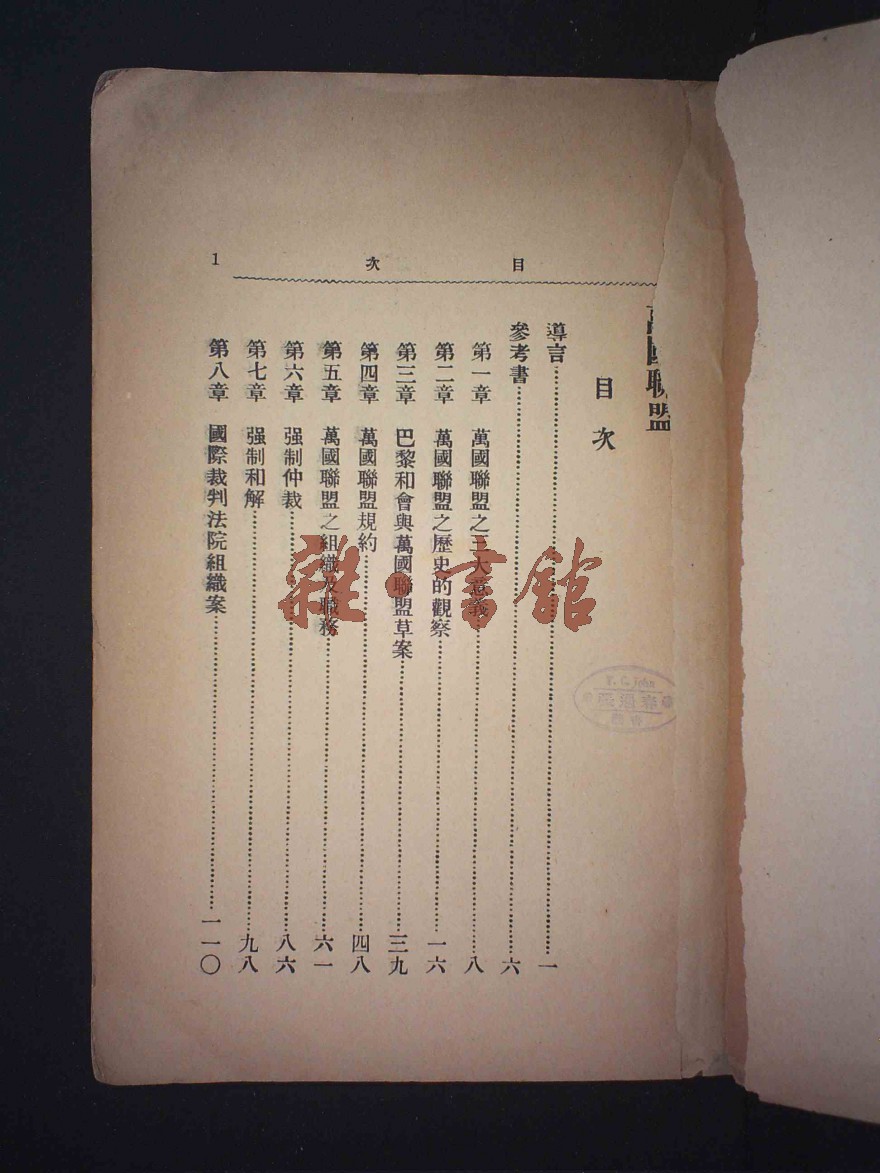 目次
1
萬國聯盟
目次
導言 一
參考書 六
第一章 萬國聯盟之三大意義 八
第二章 萬國聯盟之歷史的觀察 一六
第三章 巴黎和會與萬國聯盟草案 三九
第四章 萬國聯盟規約 四八
第五章 萬國聯盟之組織及職務 六一
第六章 强制仲裁 八六
第七章 强制和解 九八
第八章 國際裁判法院組織案 一一〇
雜·書館